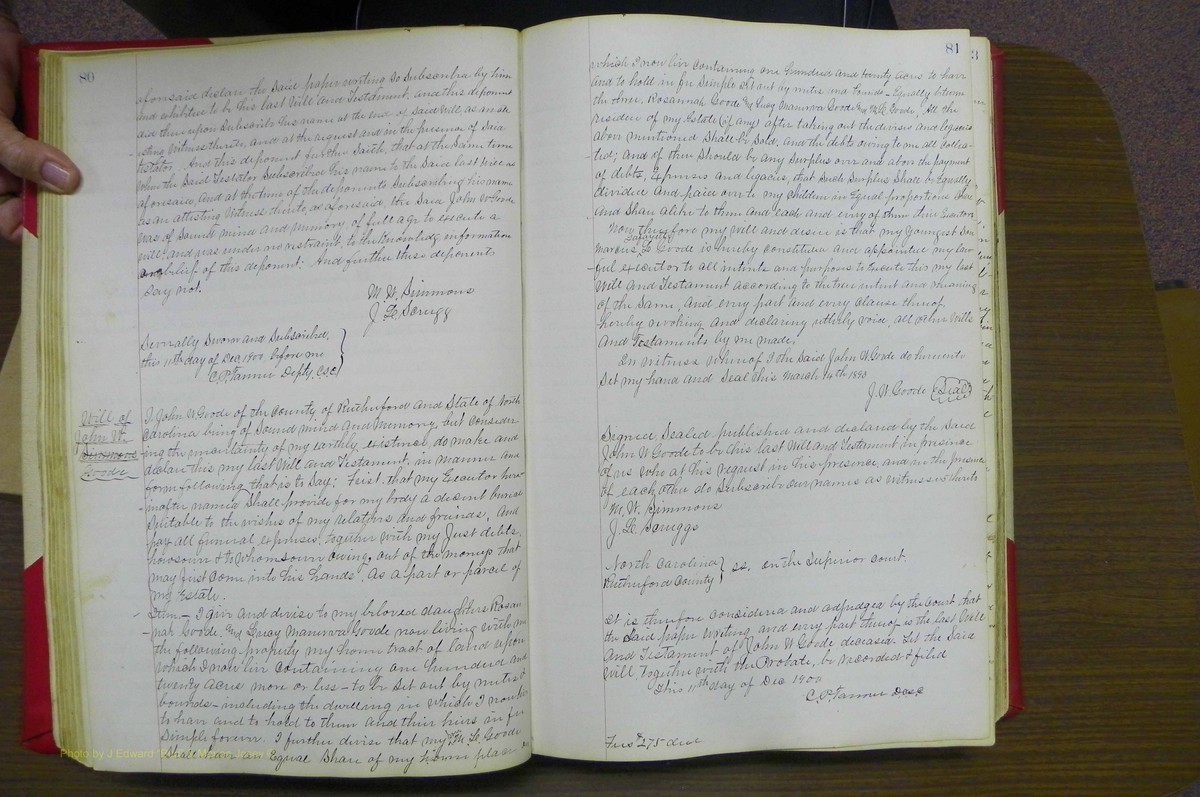 80
aforesaid declare the Said paper writing So Subscribed by him
and exhibited to be his last Will and Testament, and this deponent
did thereupon Subscribe his name at the end of Said Will as an atte
sting Witness thereto, and at the request and in the presence of Said
testator. And this deponent further Saith, that at the Same time
when the Said Testator Subscribed his name to the Said last
aforesaid, and at the time of the deponents Subscribing his name
as an attesting Witness thereto, as aforesaid, the Said John W Goode
was of Sound mind and memory, of full age to execute a
will, and was under no restraint, to the Knowledge, information
and belief, of this deponent: And further these deponents
Say not.
M. W. Simmons
J. L. Scrugg
Severally Sworn and Subscribed,
this 11th day of Dec 1900 before me
C. P. Tanner Depty. C.S.C.
Will of
John W.
Simmons
Goode
I, John W. Goode of the County of Rutherford and State of North
Carolina being of Sound mind and Memory, but consider
ing the uncertainty of my earthly existence, do make and
declare this my last Will and Testament, in manner and
form following, that is to Say: First. that my Executor here
inafter named Shall provide for my body a decent burial
Suitable to the wishes of my relatives and friends, And
pay all funeral expenses, together with my Just debts,
howsoever & to Whomsoever owing, out of the moneys that
may first come into his hands. As a part or parcel of
my Estate.
Item - I give and devise to my beloved daughters Rosan
nah Goode, and Quay Manurva Goode now living with me
the following property my home tract of land upon
which I now live containing one hundred and
twenty acres more or less - to be Set out by metes &
bounds - including the dwelling in which I now live
to have and to hold to them and their heirs in fee
Simple forever. I further devise that my M. L. Goode
Shall have an Equal Share of my home place
81
which I now live containing one hundred and twenty acres to have
and to hold in fee Simple Set out by metes and bounds - Equally between
the three, Rosannah Goode and Quay Manurva Goode and M. L. Goode. All the
residue of my Estate (if any) after taking out the devises and legacies
above mentioned Shall be Sold, and the debts owing to me all Collec-
-ted; and if there Should be any Surplus over and above the payment
of debts, Expenses and legacies, that Such Surplus Shall be Equally
divided and paid over to my children in Equal proportions Share
and Share alike to them and each and every of them their
Now therefore my will and desire is that my Youngest Son
Lafayette
Marcus L. Goode is hereby constituted and appointed my law
ful executor to all intents and purposes to Execute this my last
Will and Testament according to the true intent and meaning
of the Same, and every part and every Clause thereof,
hereby revoking and declaring utterly void, all other Wills
and Testaments by me made.
In Witness whereof I the Said John W Goode do hereunto
Set my hand and Seal this March 14th 1890
J. W Goode (Seal)
Signed, Sealed, published and declared by the Said
John W Goode to be his last Will and Testament in presence
of us who at his request in his presence, and in the presence
of each other do Subscribe our names as witnesses thereto
M. W. Simmons
J. L. Scruggs
North Carolina
Rutherford County } ss. In the Superior Court.
It is therefore Considered and adjudged by the Court that
the Said paper Writing, and every part thereof is the last Will
and Testament of John W Goode deceased. Let the Said
Will, together with the Probate, be recorded & filed
This 11th day of Dec 1900
C. P. Tanner D.C.S.C.
Fees $2.75 due